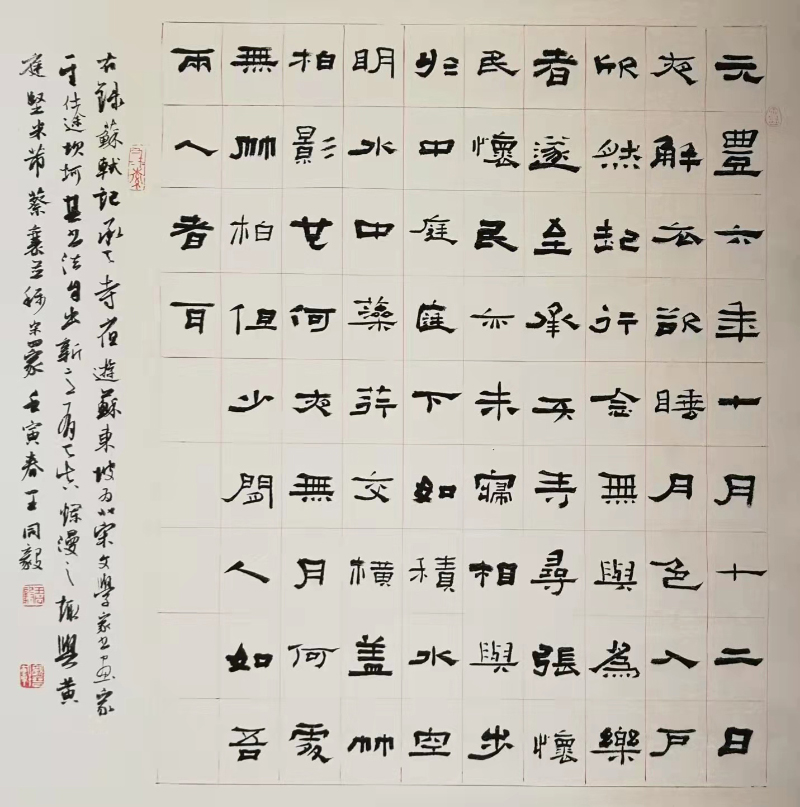 元豐六年十月十二日
夜解衣欲睡月色入戶
欣然起行念無與為樂
者遂至承天寺尋張懷
民懷民亦未寢相與步
於中庭庭下如積水空
明水中藻荇交橫蓋竹
柏影也何夜無月何處
無竹柏但少閒人如吾
兩人者耳
右錄蘇軾記承天寺夜遊蘇東坡为北宋文學家书画家
一生仕途坎坷其书法自出新意有天真爛漫之趣與黃
庭堅米芾蔡襄並稱宋四家壬寅春王同毅